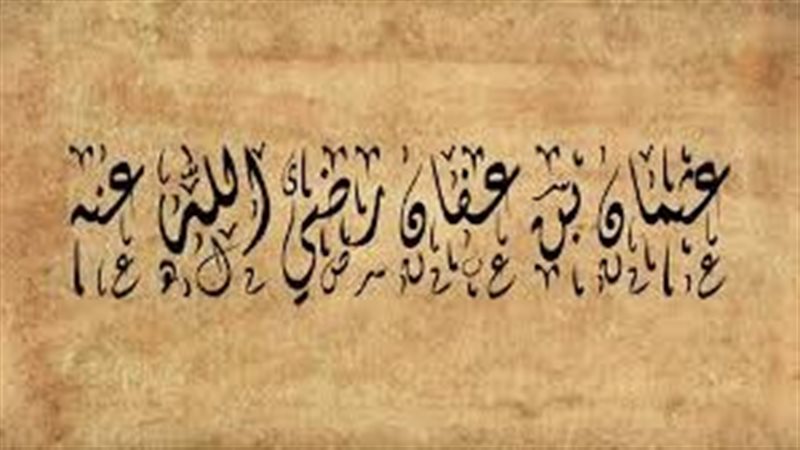 عثمان بن عفان رضي الله عنه